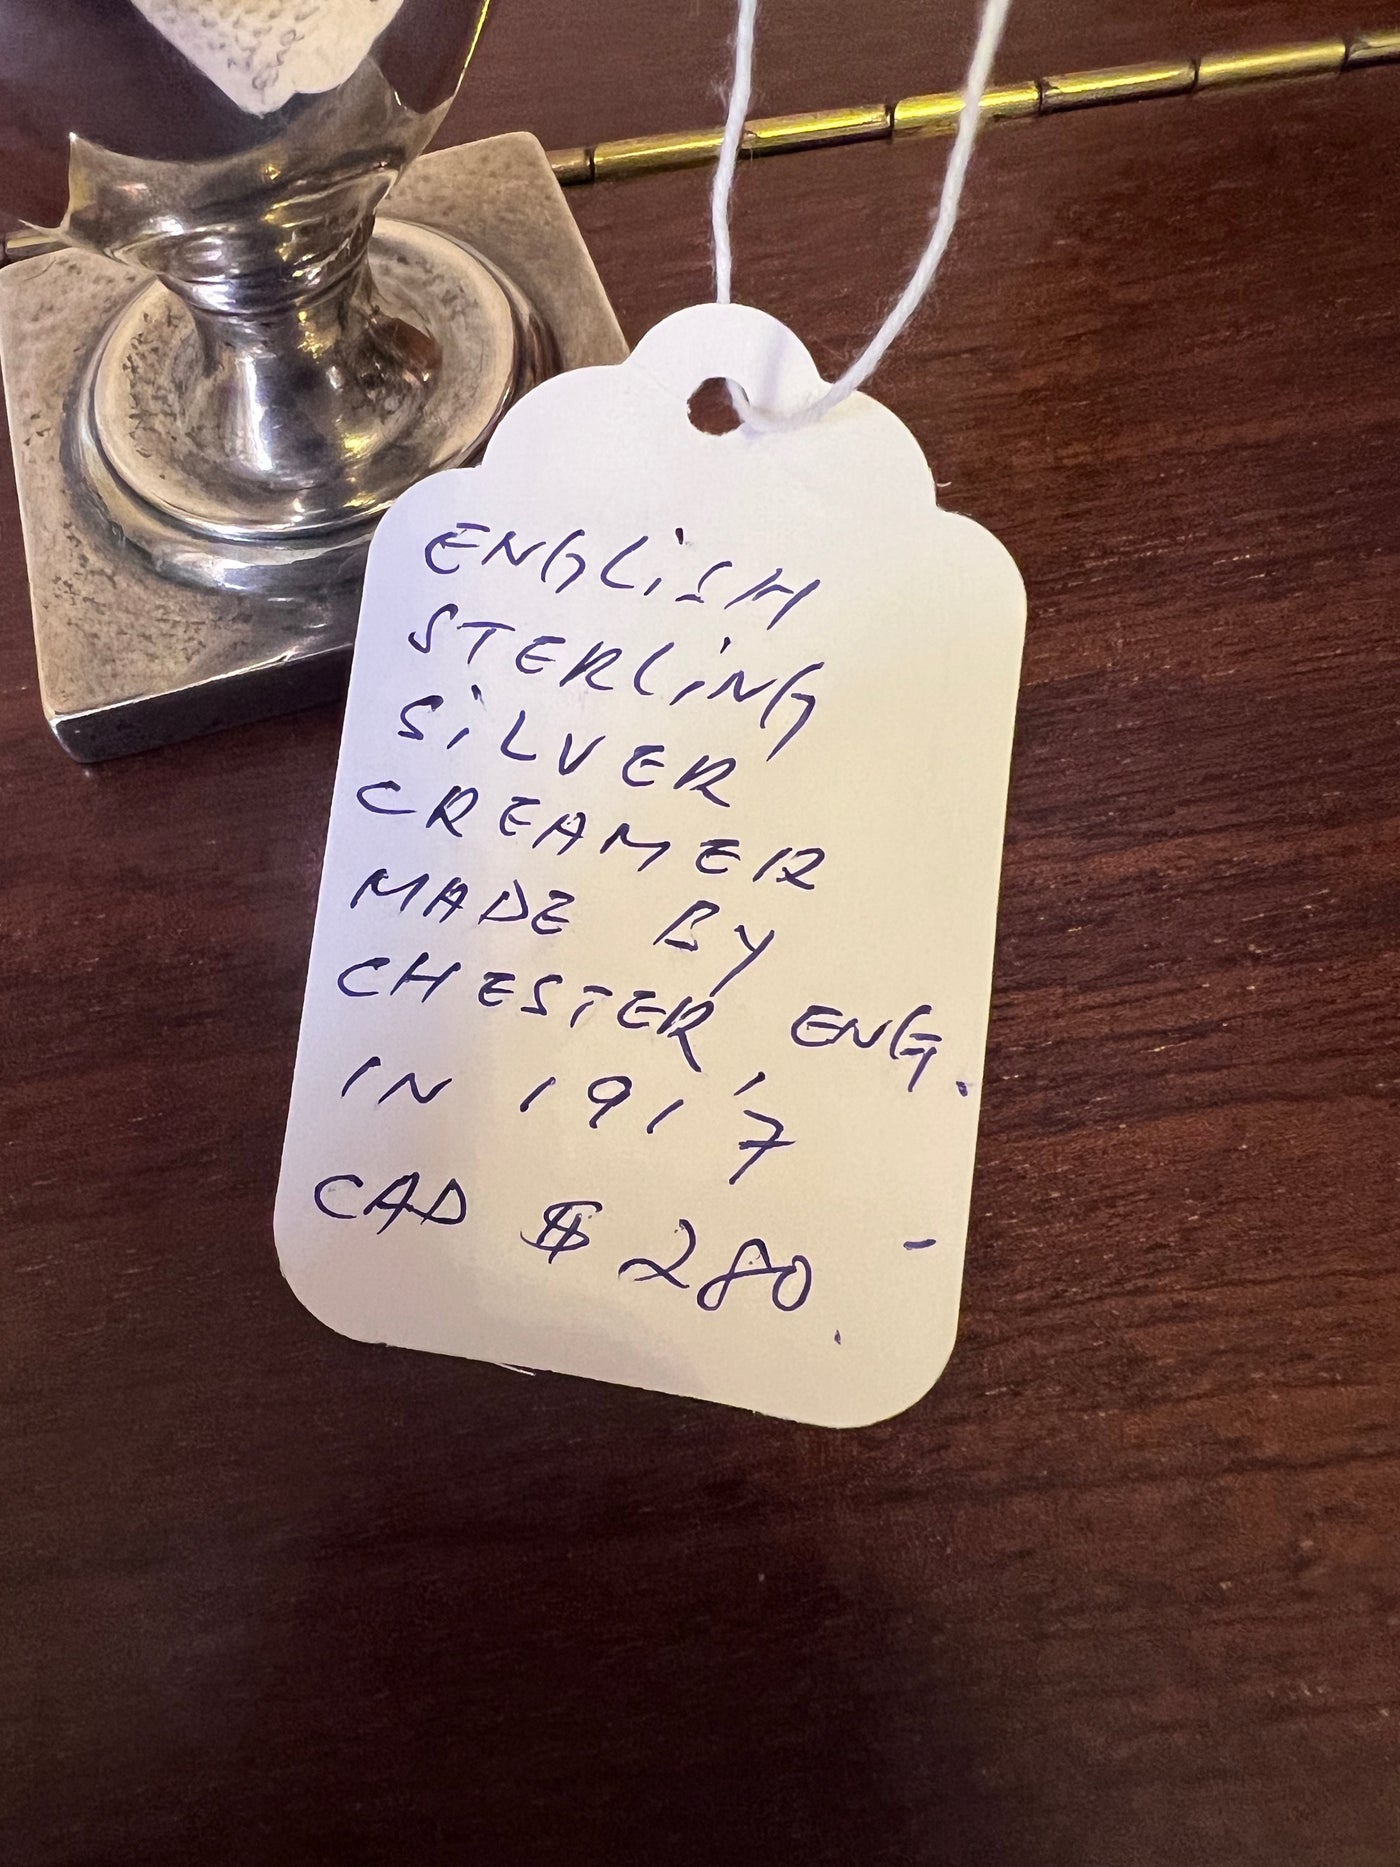 ENGLiSH
STERLiNG
SiLVER
CREAMER
MADE BY
CHESTER, ENG.
IN 1917
CAD $ 280.-